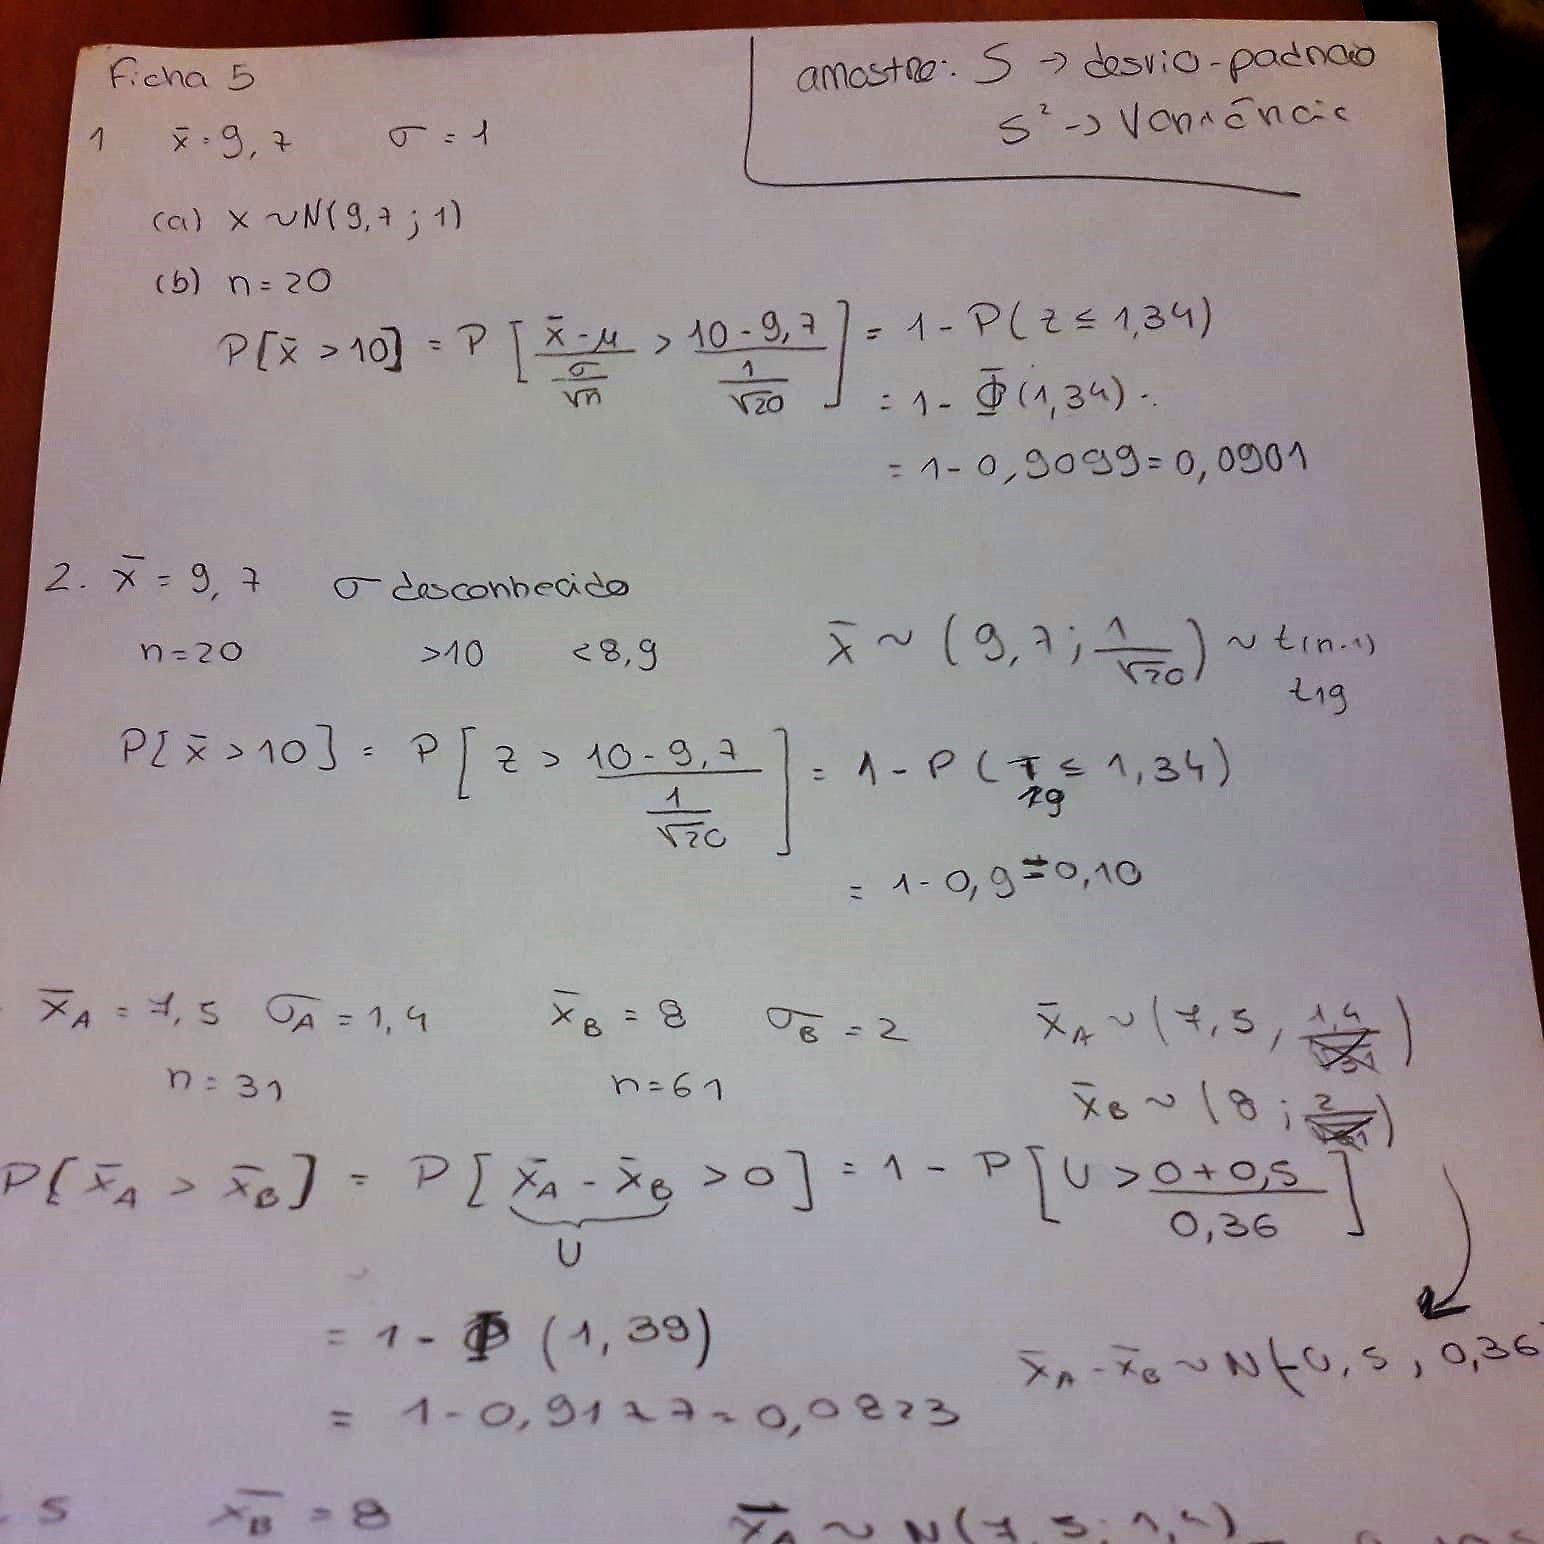 Ficha 5
amostra: S → desvio-padrão
S² → Variância
1 x̄ = 9,7 σ = 1
(a) x ~ N(9,7 ; 1)
(b) n = 20
P[x̄ > 10] = P[(x̄ - μ)/(σ/√n) > (10 - 9,7)/(1/√20)] = 1 - P(z ≤ 1,34)
= 1 - Φ(1,34)
= 1 - 0,9099 = 0,0901
2. x̄ = 9,7 σ desconhecido
n = 20 >10 <8,9
x̄ ~ (9,7 ; 1/√20) ~ t(n-1)
t19
P[x̄ > 10] = P[z > (10 - 9,7)/(1/√20)] = 1 - P(T19 ≤ 1,34)
= 1 - 0,9 = 0,10
x̄A = 7,5 σA = 1,4 x̄B = 8 σB = 2
x̄A ~ (7,5 , 1,4)
n = 31 n = 61
x̄B ~ (8 ; 2)
P[x̄A > x̄B] = P[x̄A - x̄B > 0] = 1 - P[U > (0 + 0,5)/0,36]
U
= 1 - Φ(1,39)
x̄A - x̄B ~ N(-0,5 , 0,36
= 1 - 0,9177 = 0,0823
5 x̄B = 8
x̄A ~ N(7,5 ; 1,4)